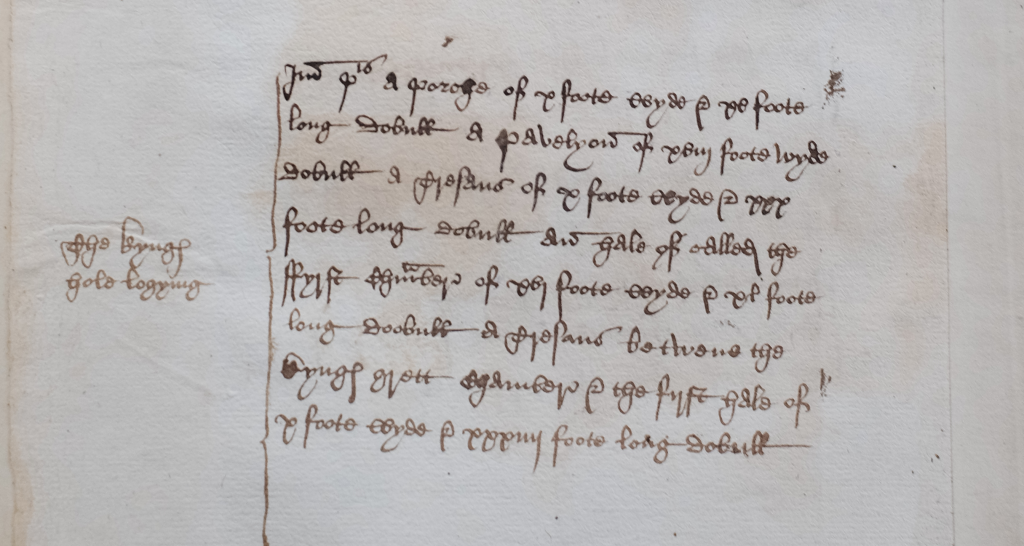 The kyngs
hole logying
Im p'is a porche of x foote wyde & xl foote
long dobull a pavelyon of xviij foote wyde
dobull a tresans of x foote wyde & xxx
foote long dobull an hale of called the
ffyrst chamber of xvj foote wyde & xl foote
long doobull a tresans betwene the
kyngs grett chamber & the fyrst hale of
x foote wyde & xxxiiij foote long dobull